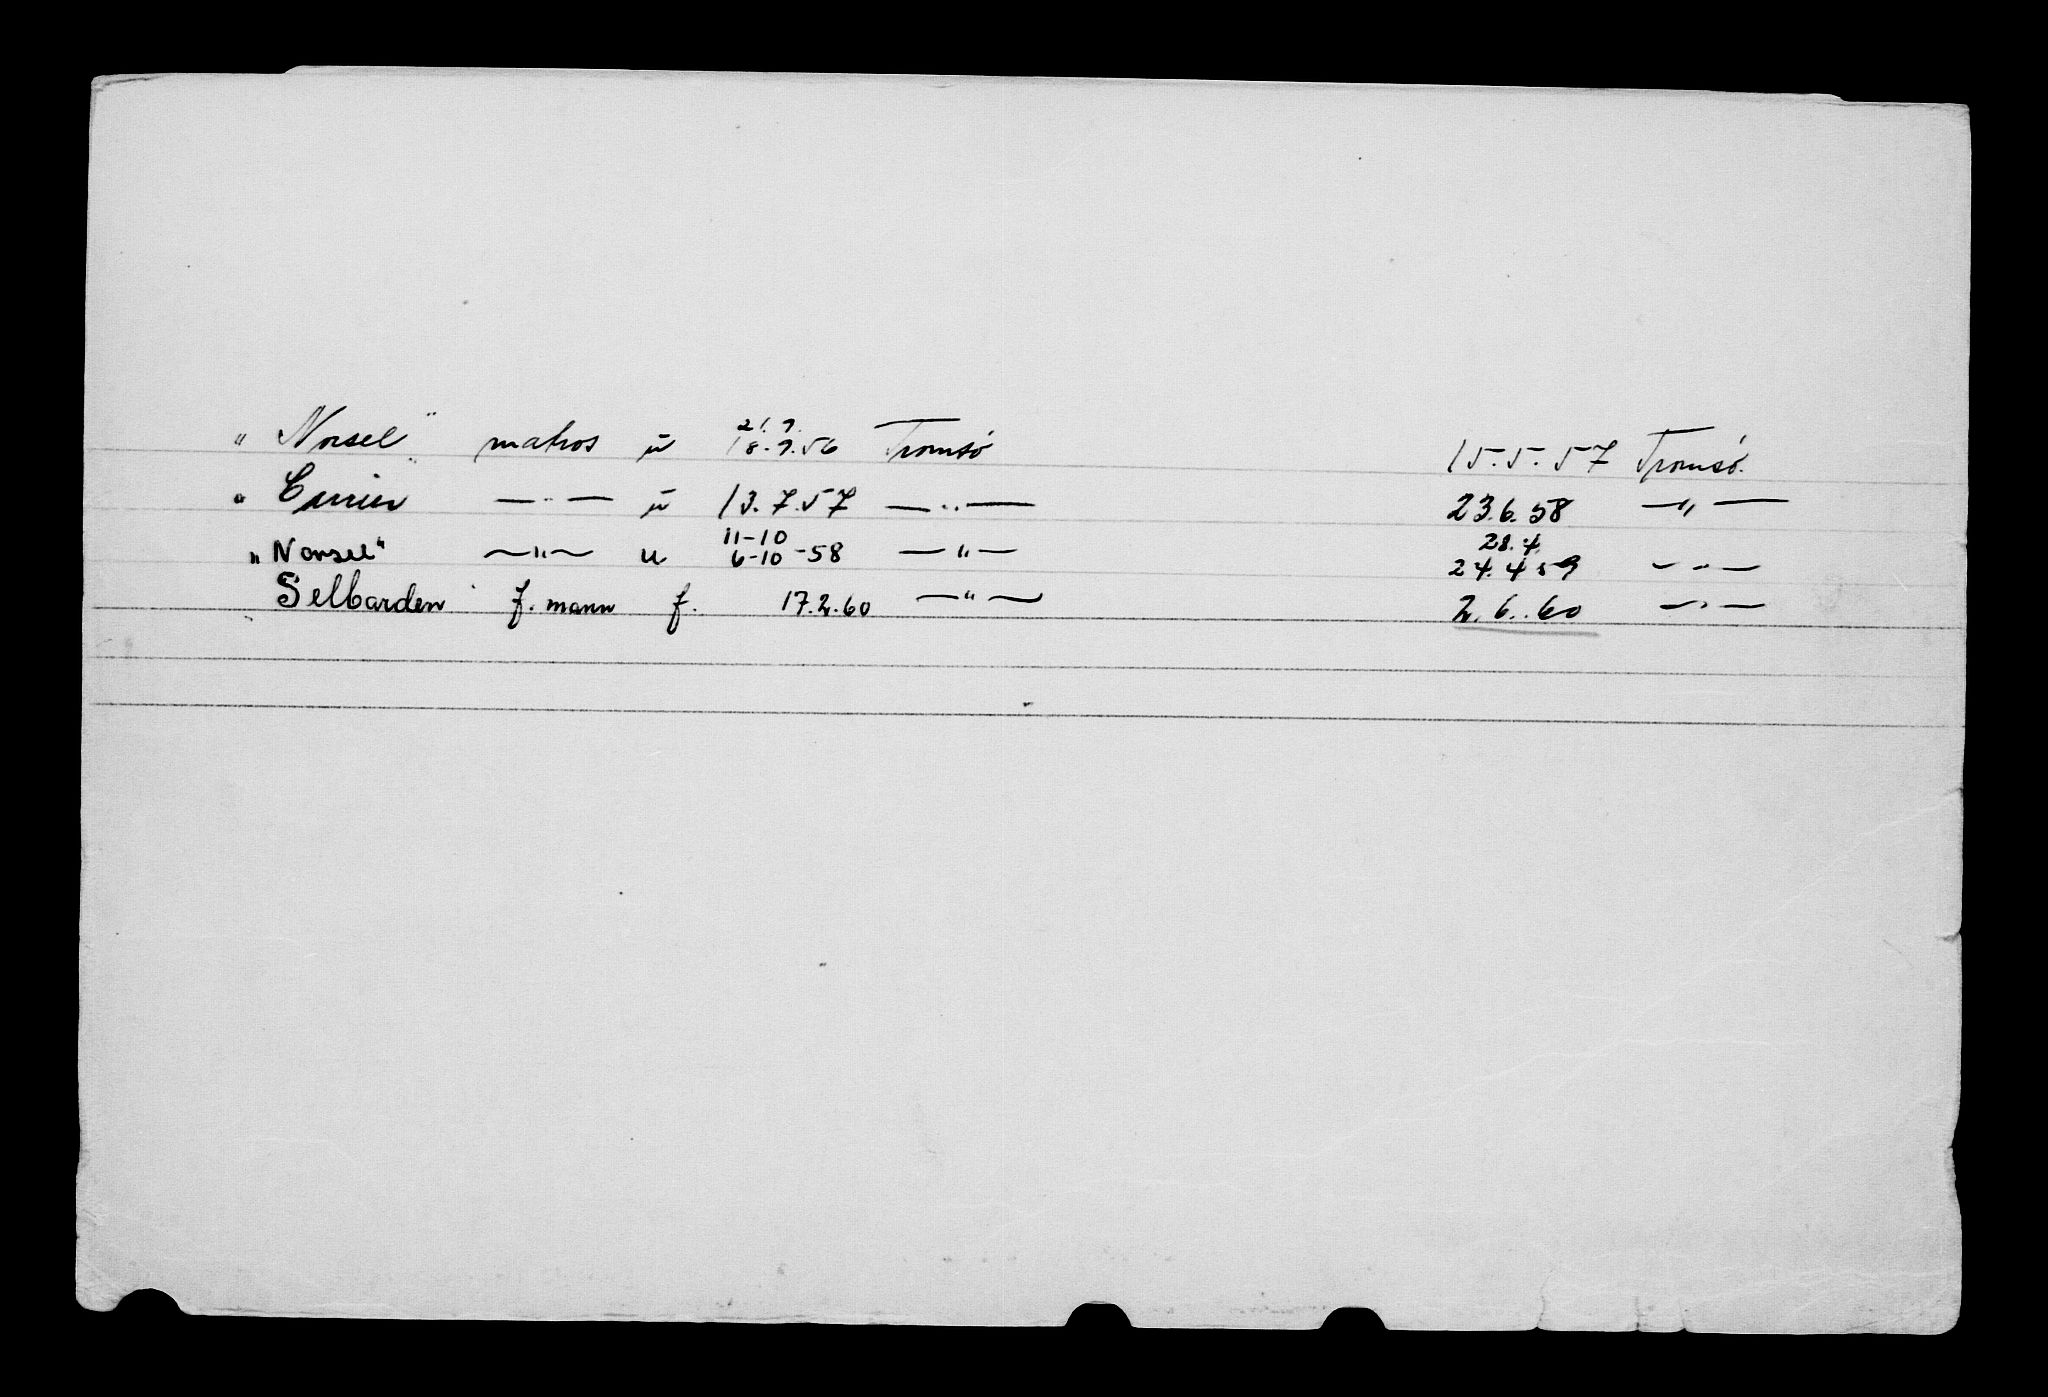 21. 9.
"Norsel" matros u 18.-9.56 Tromsö 15.5.57 Tromsö.
" —"— u 13.7.57 —"— 23.6.58 —"—
11-10 28.4.
"Norsel" —"— u 6-10-58 —"— 24.4 59 —"—
Selbarden f. mann f. 17.2.60 —"— 2.6.60 —"—